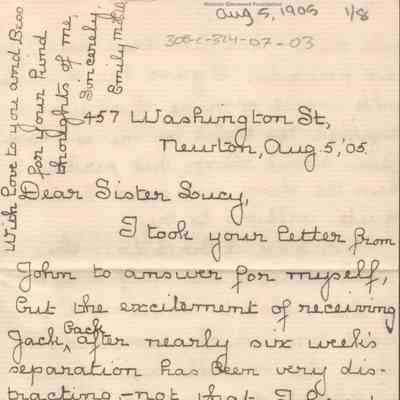 Historic Glenwood Foundation
Aug 5, 1905 1/8
308-2-324-07-03
With love to you and Bess
for your kind
thoughts of me,
Sincerely,
Emily
457 Washington St,
Newton, Aug. 5, '05.
Dear Sister Lucy,
I took your letter from
John to answer for myself,
but the excitement of receiving
Jack back after nearly six week's
separation has been very dis-
tracting,-not that I